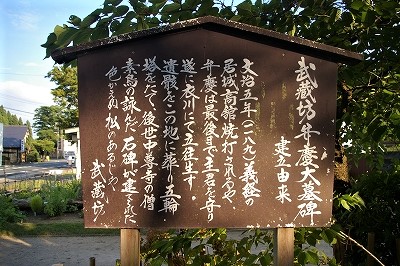 武蔵坊弁慶大墓碑
建立由来
文治五年（一一八九）義経の
居城高館焼打されるや、
弁慶は最後まで主君を守り
遂に衣川にて立往生す、
遺骸をこの地に葬り五輪
塔をたて、後世中尊寺の僧
素鳥の詠んだ石碑が建てられた
色かえぬ松のあるじや
武蔵坊